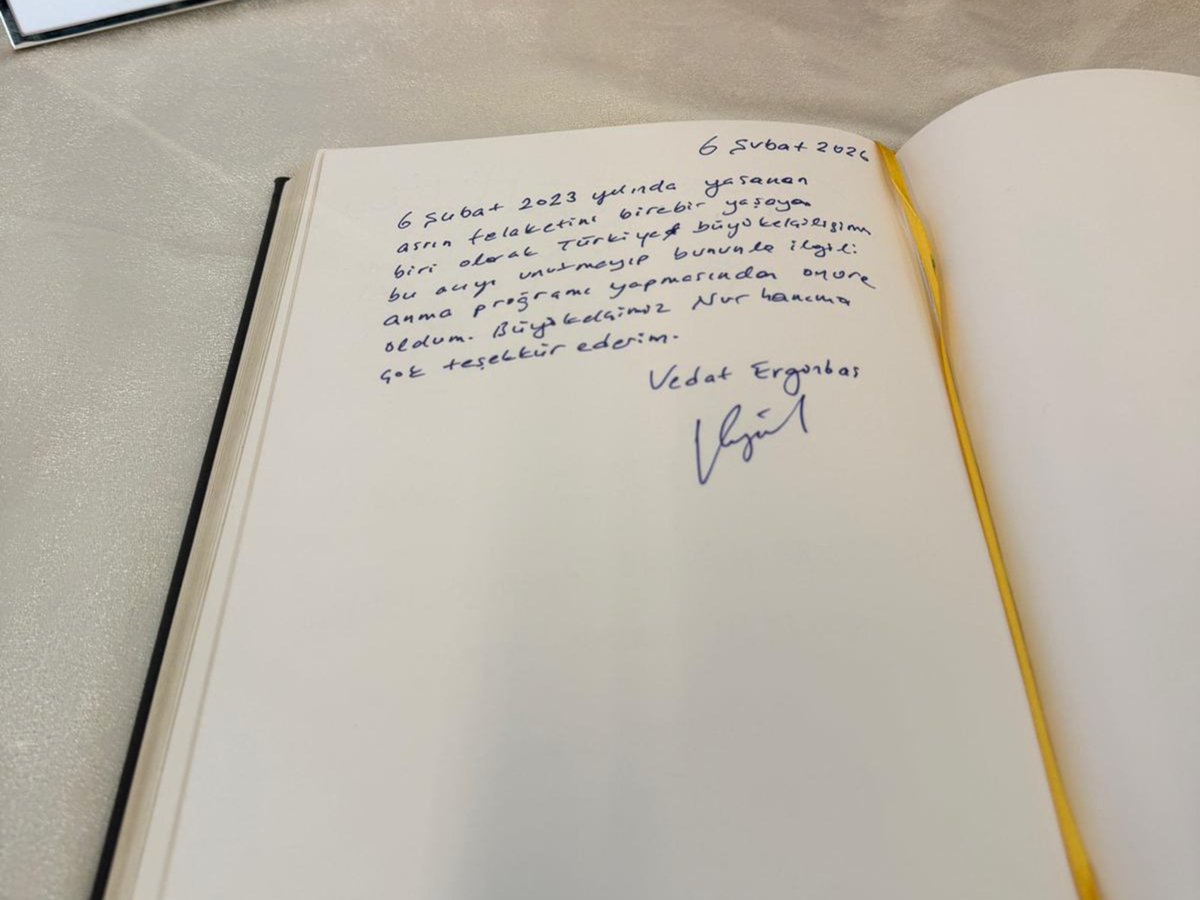 6 Şubat 2026
6 Şubat 2023 yılında yaşanan
asrın felaketini birebir yaşayan
biri olarak Türkiye büyükelçiliğinin
bu acıyı unutmayıp bununla ilgili
anma proğramı yapmasından onure
oldum. Büyükelçimiz Nur hanıma
çok teşekkür ederim.
Vedat